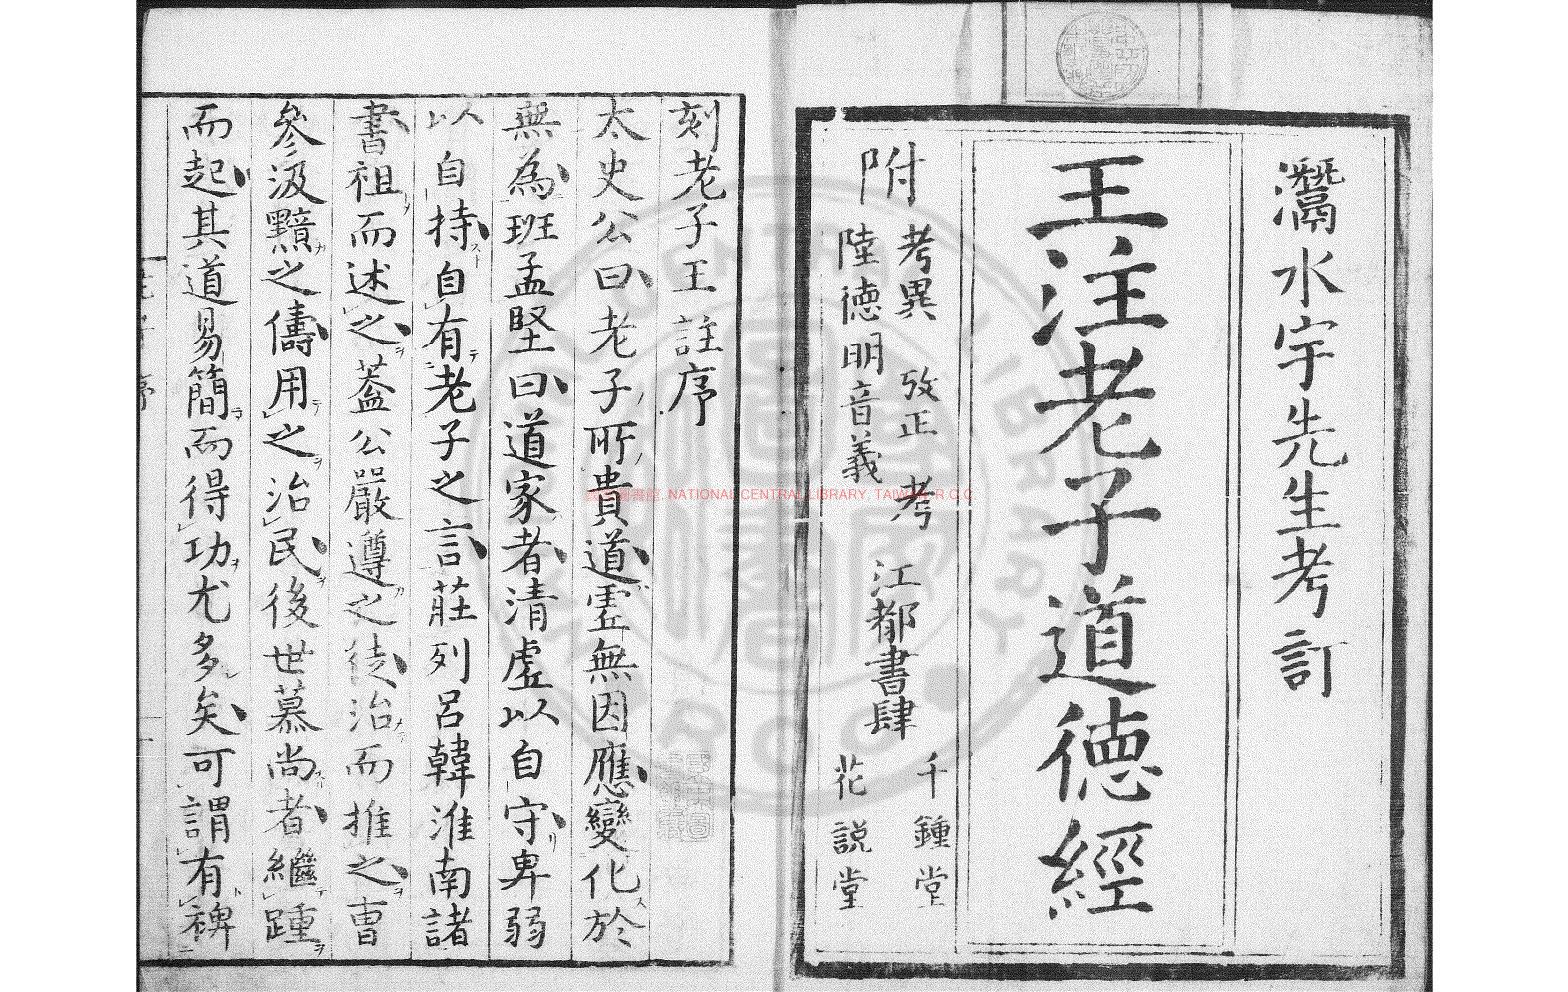 灊水宇先生考訂
王注老子道德經
附 考異 攷正 考
陸德明音義
江都書肆
千鍾堂
花説堂
刻老子王註序
太史公曰老子所貴道虛無因應變化於
無為班孟堅曰道家者清虛以自守卑弱
以自持自有老子之言莊列呂韓淮南諸
書祖而述之葢公嚴遵之徒治而推之曹
參汲黯之儔用之治民後世慕尚者繼踵
而起其道易簡而得功尤多矣可謂有裨
NATIONAL CENTRAL LIBRARY, TAIWAN, R.O.C